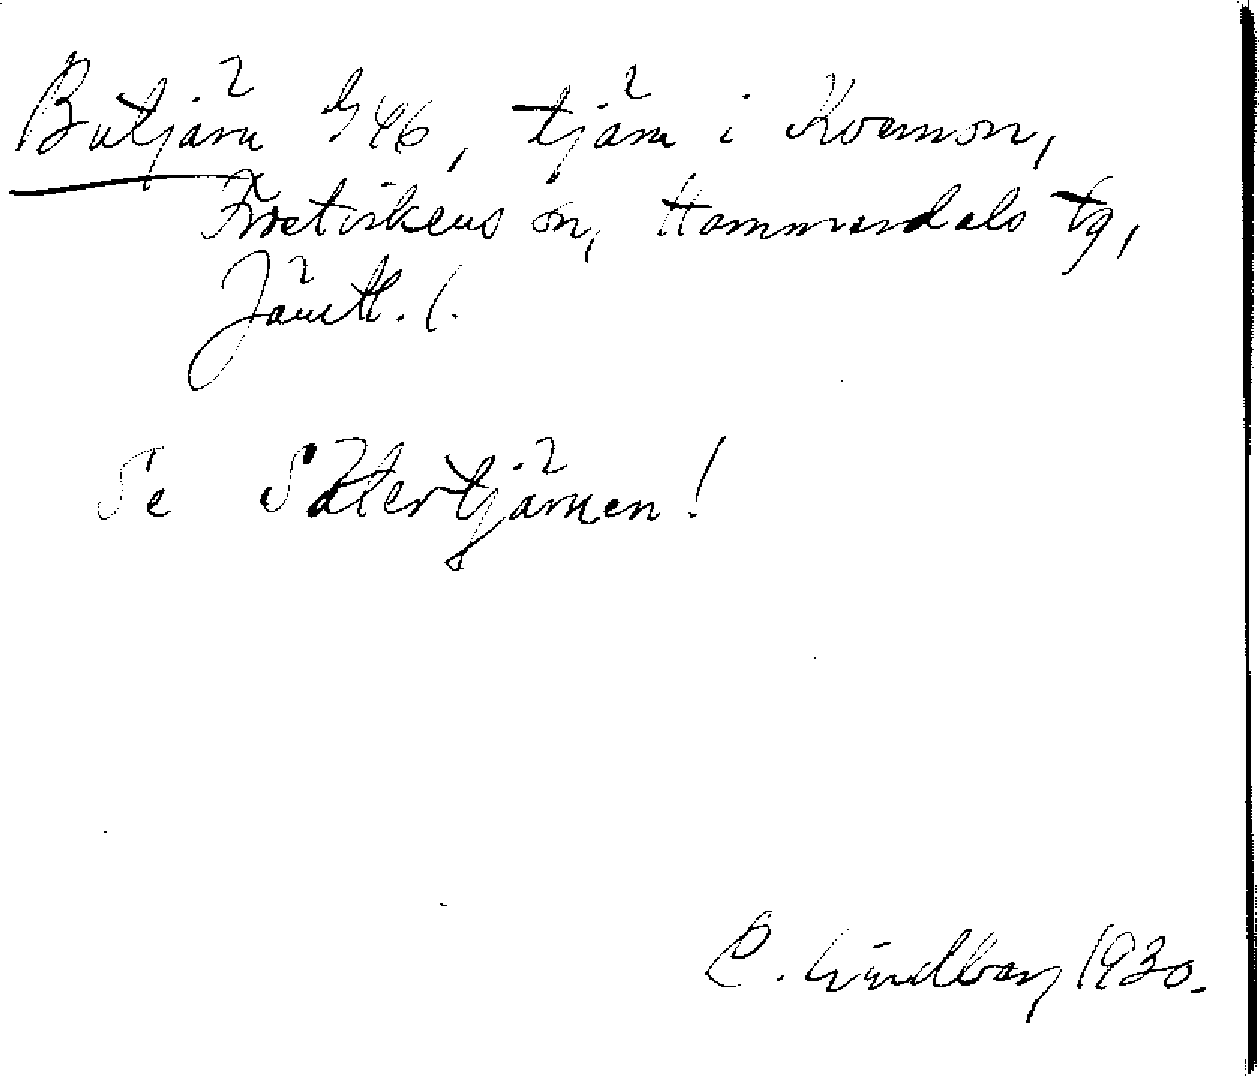 Butjärn 946, tjärn i Kvarnön,
Fyrtvikens sn, Hammerdals tg,
Jämtl. l.
Se Sätertjärnen!
C. Lindberg 1930.